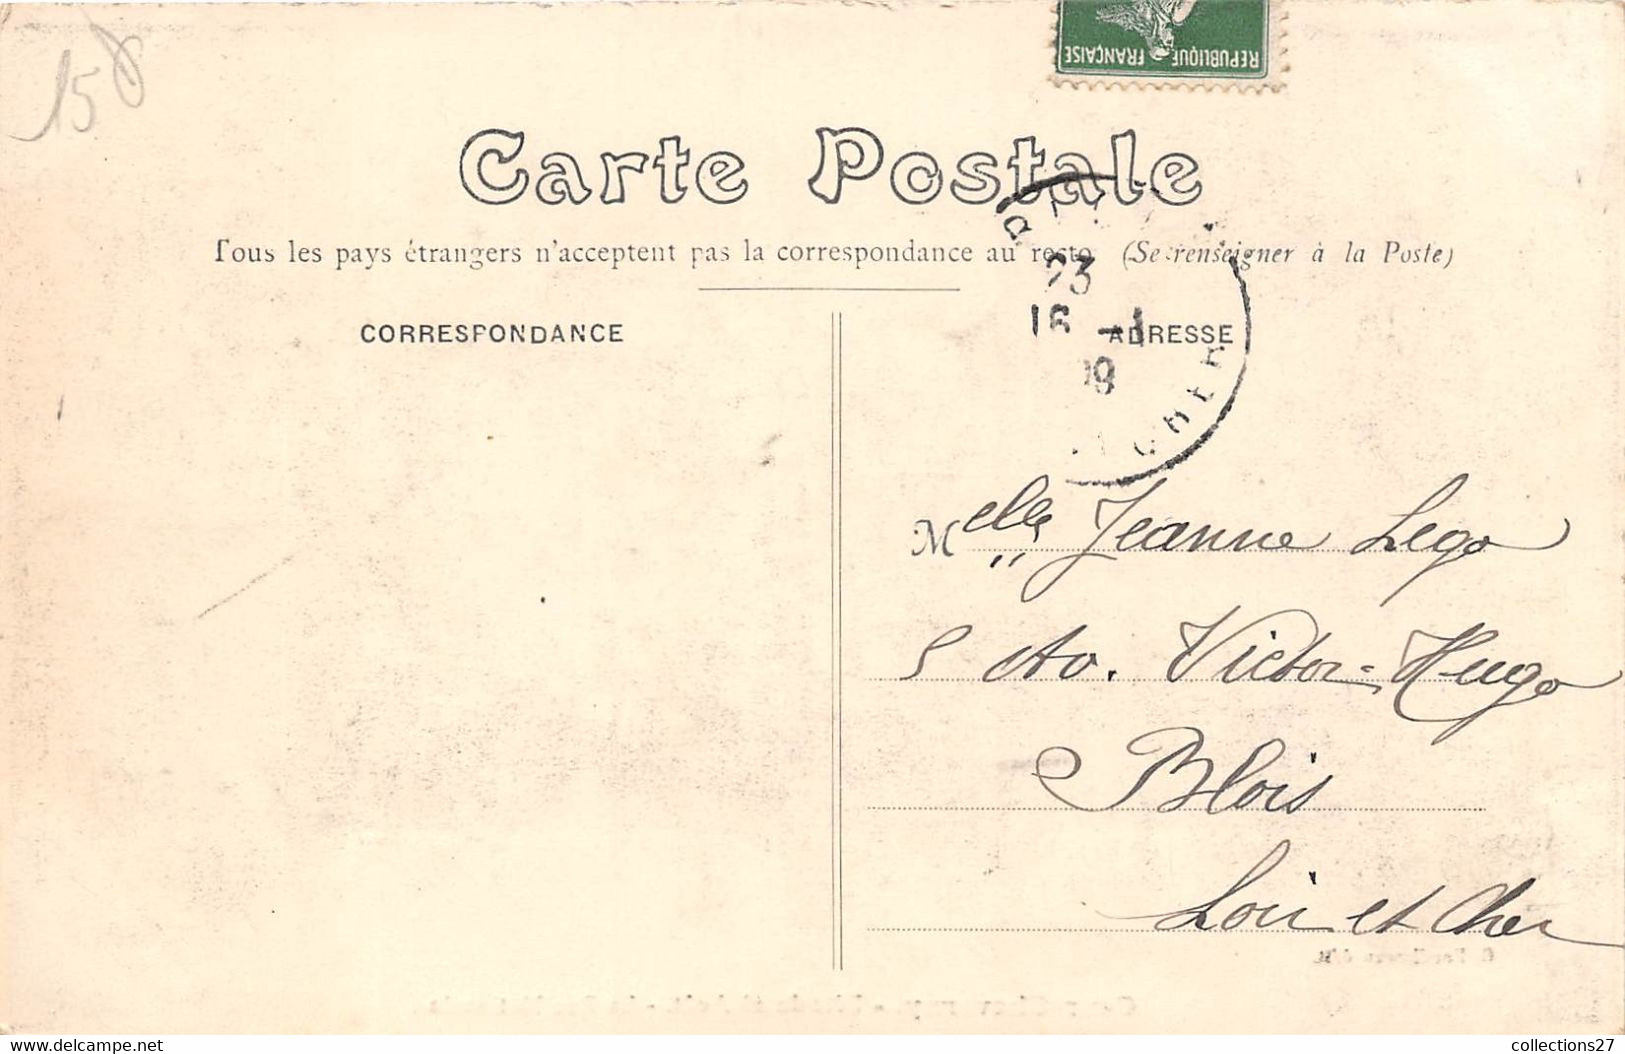 158
REPUBLIQUE FRANÇAISE
Carte Postale
Tous les pays étrangers n'acceptent pas la correspondance au recto (Se renseigner à la Poste)
23
16 -1
09
CHER
CORRESPONDANCE
ADRESSE
Melle Jeanne Lego
5 Av. Victor-Hugo
Blois
Loir et Cher
https://www.delcampe.net
collections27